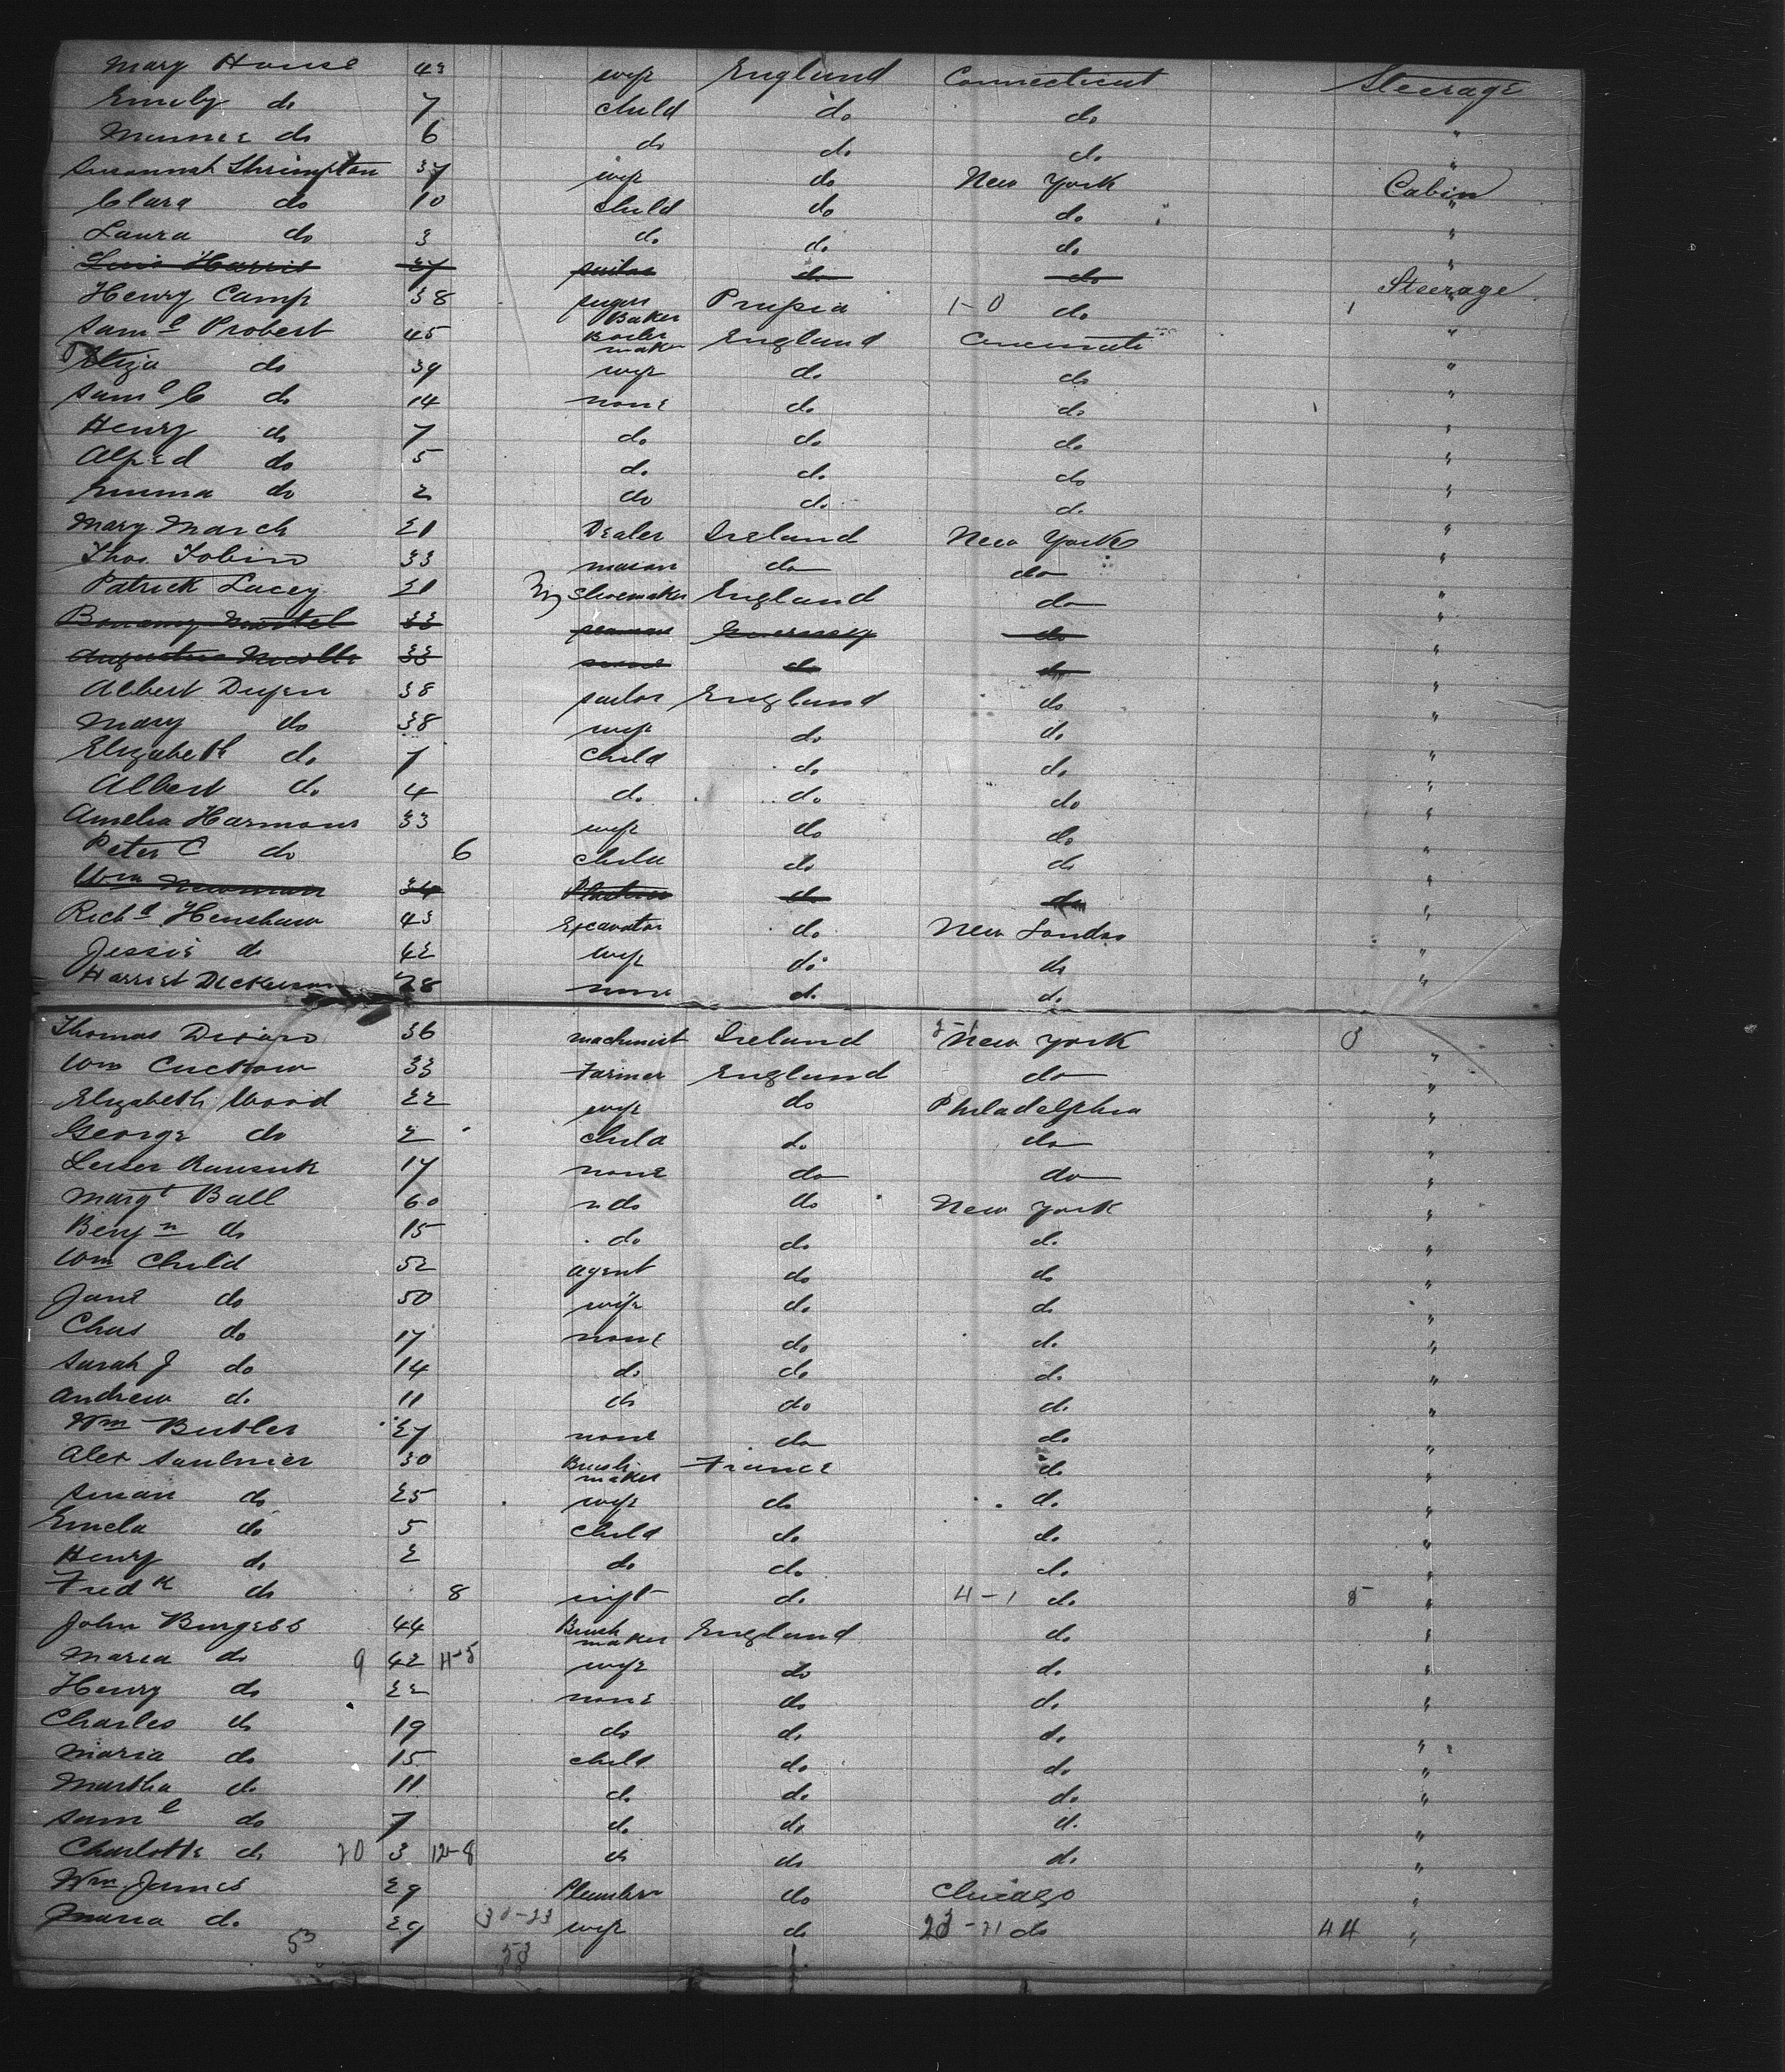 Mary House 43 wife England Connecticut Steerage
Emily do 7 child do do "
Minnie do 6 do do do "
Susannah Shrimpton 37 wife do New York Cabin
Clara do 10 child do do "
Laura do 3 do do do "
Harris 27 do do "
Henry Camp 38 sugar Baker Prussia 1-0 do 1 Steerage
Saml Probert 45 Boiler maker England Cincinnati "
Eliza do 39 wife do do "
Saml C do 14 none do do "
Henry do 7 do do do "
Alfred do 5 do do do "
Emma do 2 do do do "
Mary March 21 Dealer Ireland New York "
Thos Tobin 33 mason do do "
Patrick Lacey 21 Shoemaker England do "
Martel 33 seaman Guernsey do "
Augustus 33 none do do "
Albert 38 sailor England do "
Mary do 38 wife do do "
Elizabeth do 7 child do do "
Albert do 4 do do do "
Amelia Harmons 33 wife do do "
Peter C do 6 child do do "
Wm Newman 34 do do "
Richd Henshaw 43 Excavator do New London "
Jessie do 42 wife do do "
Harriet Dickerson 28 none do do "
Thomas 36 machinist Ireland New York 3 "
Wm Cuckow 33 Farmer England do "
Elizabeth Wood 22 wife do Philadelphia "
George do 2 child do do "
17 none do do "
Margt Ball 60 do do New York "
Benjn do 15 do do do "
Wm Child 52 agent do do "
Jane do 50 wife do do "
Chas do 17 none do do "
Sarah J do 14 do do do "
Andrew do 11 do do do "
Wm Butler 27 none do do "
Alex Saulnier 30 Brush maker France do "
Susan do 25 wife do do "
do 5 child do do "
Henry do 2 do do do "
Fredk do 8 inft do 4-1 do 5 "
John Burgess 44 Brush maker England do "
Maria do 9 42 11-5 wife do do "
Henry do 22 none do do "
Charles do 19 do do do "
Maria do 15 child do do "
Martha do 11 do do do "
Saml do 7 do do do "
Charlotte do 20 3 12-8 do do do "
Wm James 29 Plumber do Chicago "
Maria do 29 30-23 wife do 23-21 do 44 "
53 53